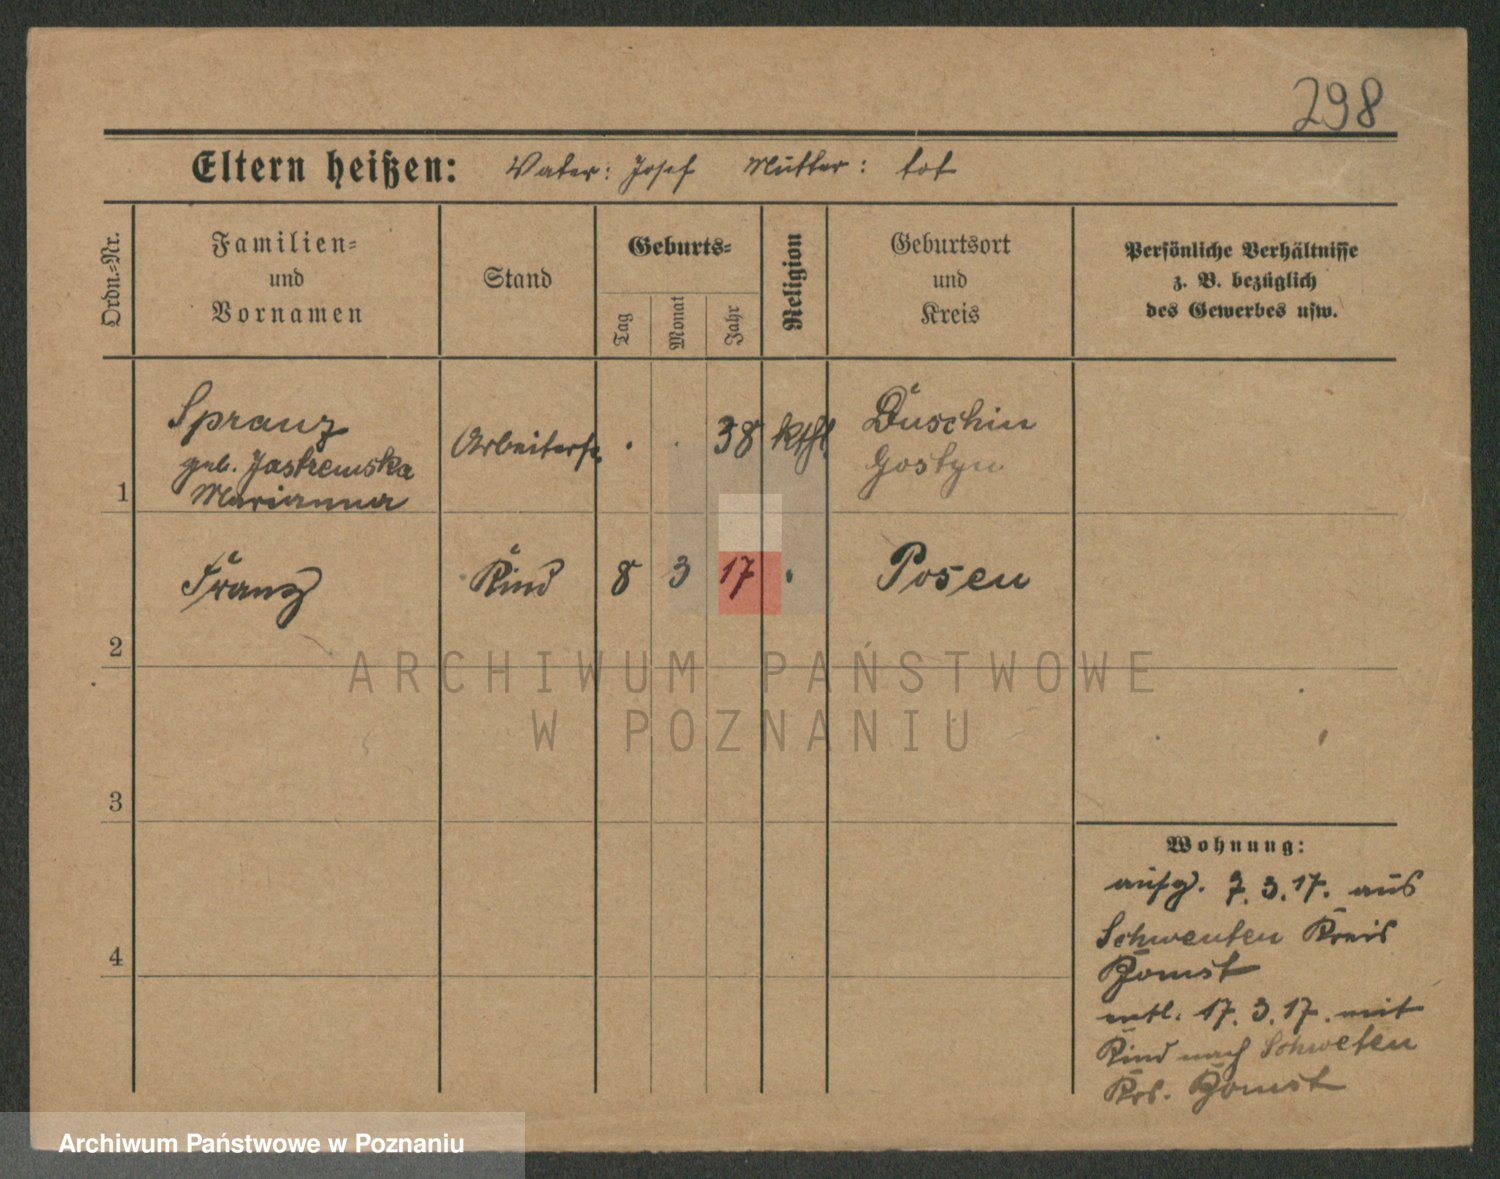 298
Eltern heißen: Vater: Josef Mutter: tot
Ordn.=Nr.
Familien=
und
Vornamen
Stand
Geburts=
Tag
Monat
Jahr
Religion
Geburtsort
und
Kreis
Persönliche Verhältnisse
z. B. bezüglich
des Gewerbes usw.
1
Spranz
geb. Jastremska
Marianna
Arbeiterfr.
.
.
38
kthl.
Duschin
Gostyn
2
Franz
Kind
8
3
17
.
Posen
3
4
Wohnung:
aufg. 7.3.17. aus
Schwenten Kreis
Bomst
entl. 17.3.17. mit
Kind nach Schweten
Krs. Bomst
ARCHIWUM PAŃSTWOWE
W POZNANIU
Archiwum Państwowe w Poznaniu